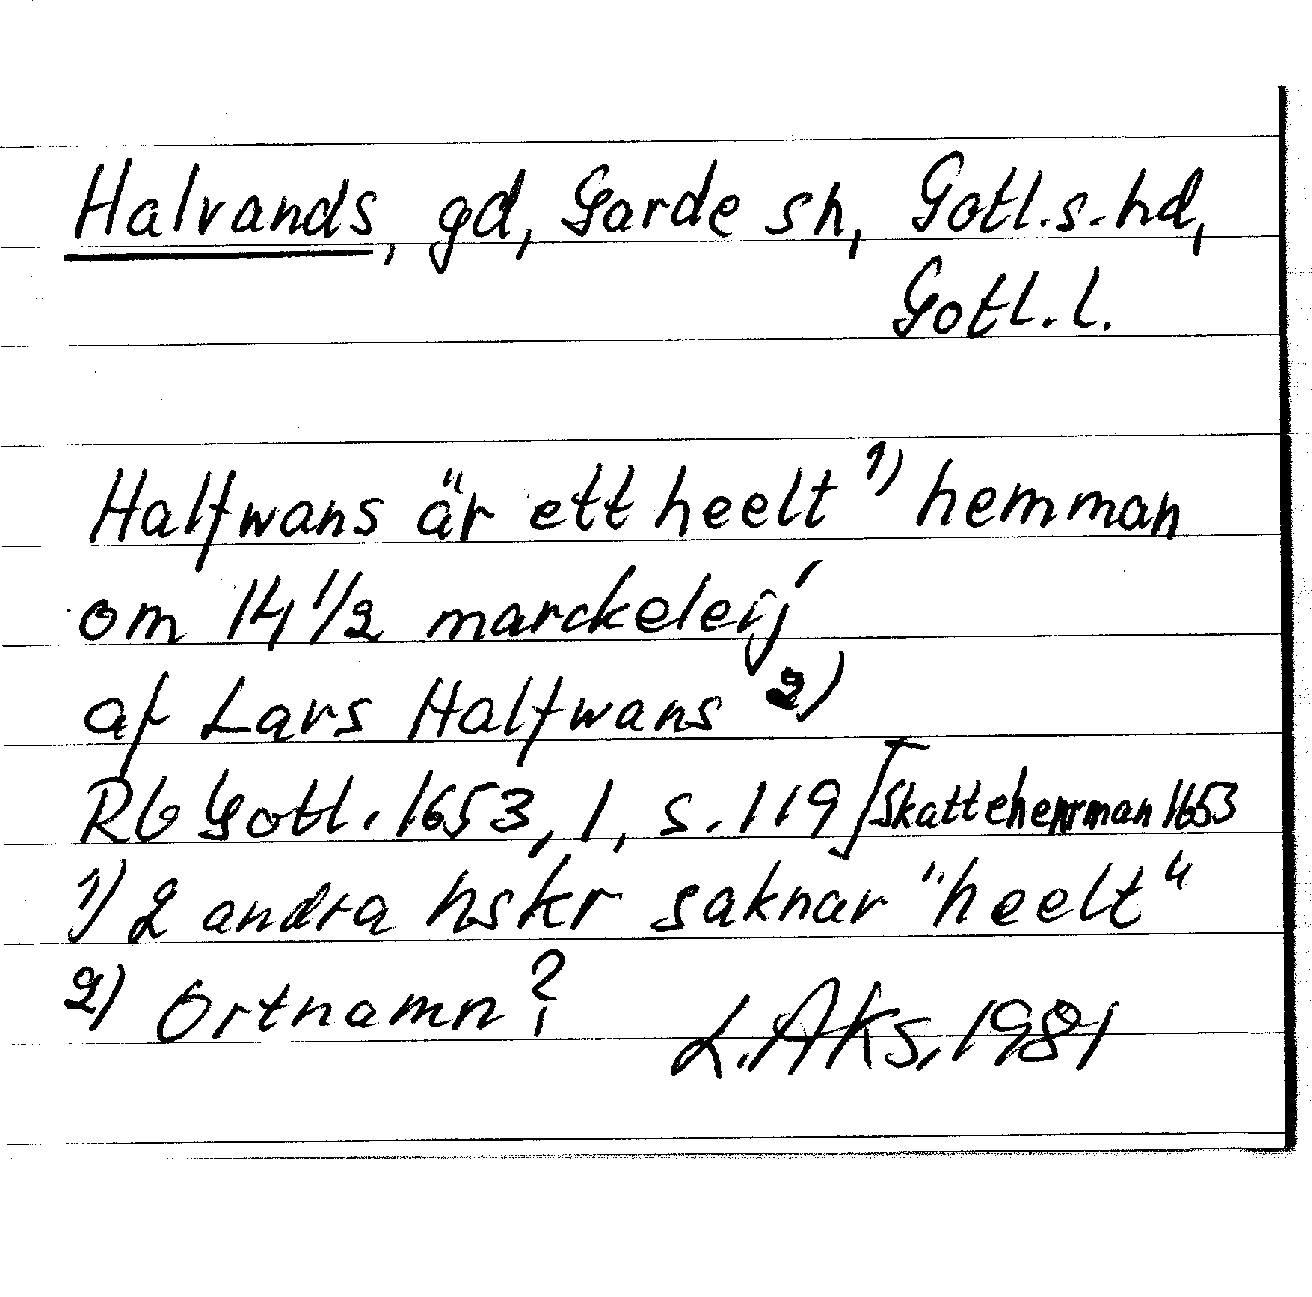 Halvands, gd, Garde sn, Gotl.s.hd,
Gotl.l.
Halfwans är ett heelt 1) hemman
om 14 1/2 marckeleij
af Lars Halfwans 2)
Rb Gotl. 1653, 1, s. 119 [Skattehemman 1653
1) 2 andra hskr saknar "heelt"
2) Ortnamn?
L.Aks, 1981